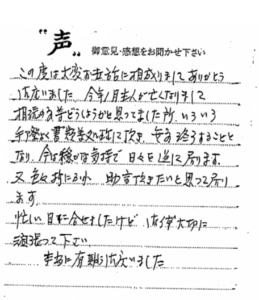 "声" 御意見・感想をお聞かせ下さい
この度は大変お世話に相成りましてありがとう
御座いました 今年1月主人が亡くなりまして
相続の事等どうしようかと思ってました所、いろいろ
手際よく書類等 頂き、無事 終うすることと
なり、今は穏かな気持で 日々を過して居ります。
又 色々 時にふれ 助言頂きたいと思って居り
ます。
忙しい日々に 合せましたけど、 大切に
頑張って下さい
本当に有難う 御座いました